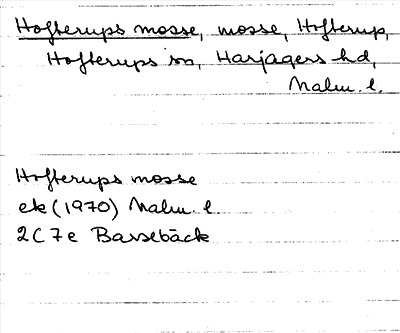 Hofterups mosse, mosse, Hofterup,
Hofterups sn, Harjagers hd,
Malm. l.
Hofterups mosse
ek (1970) Malm. l.
2C7e Barsebäck